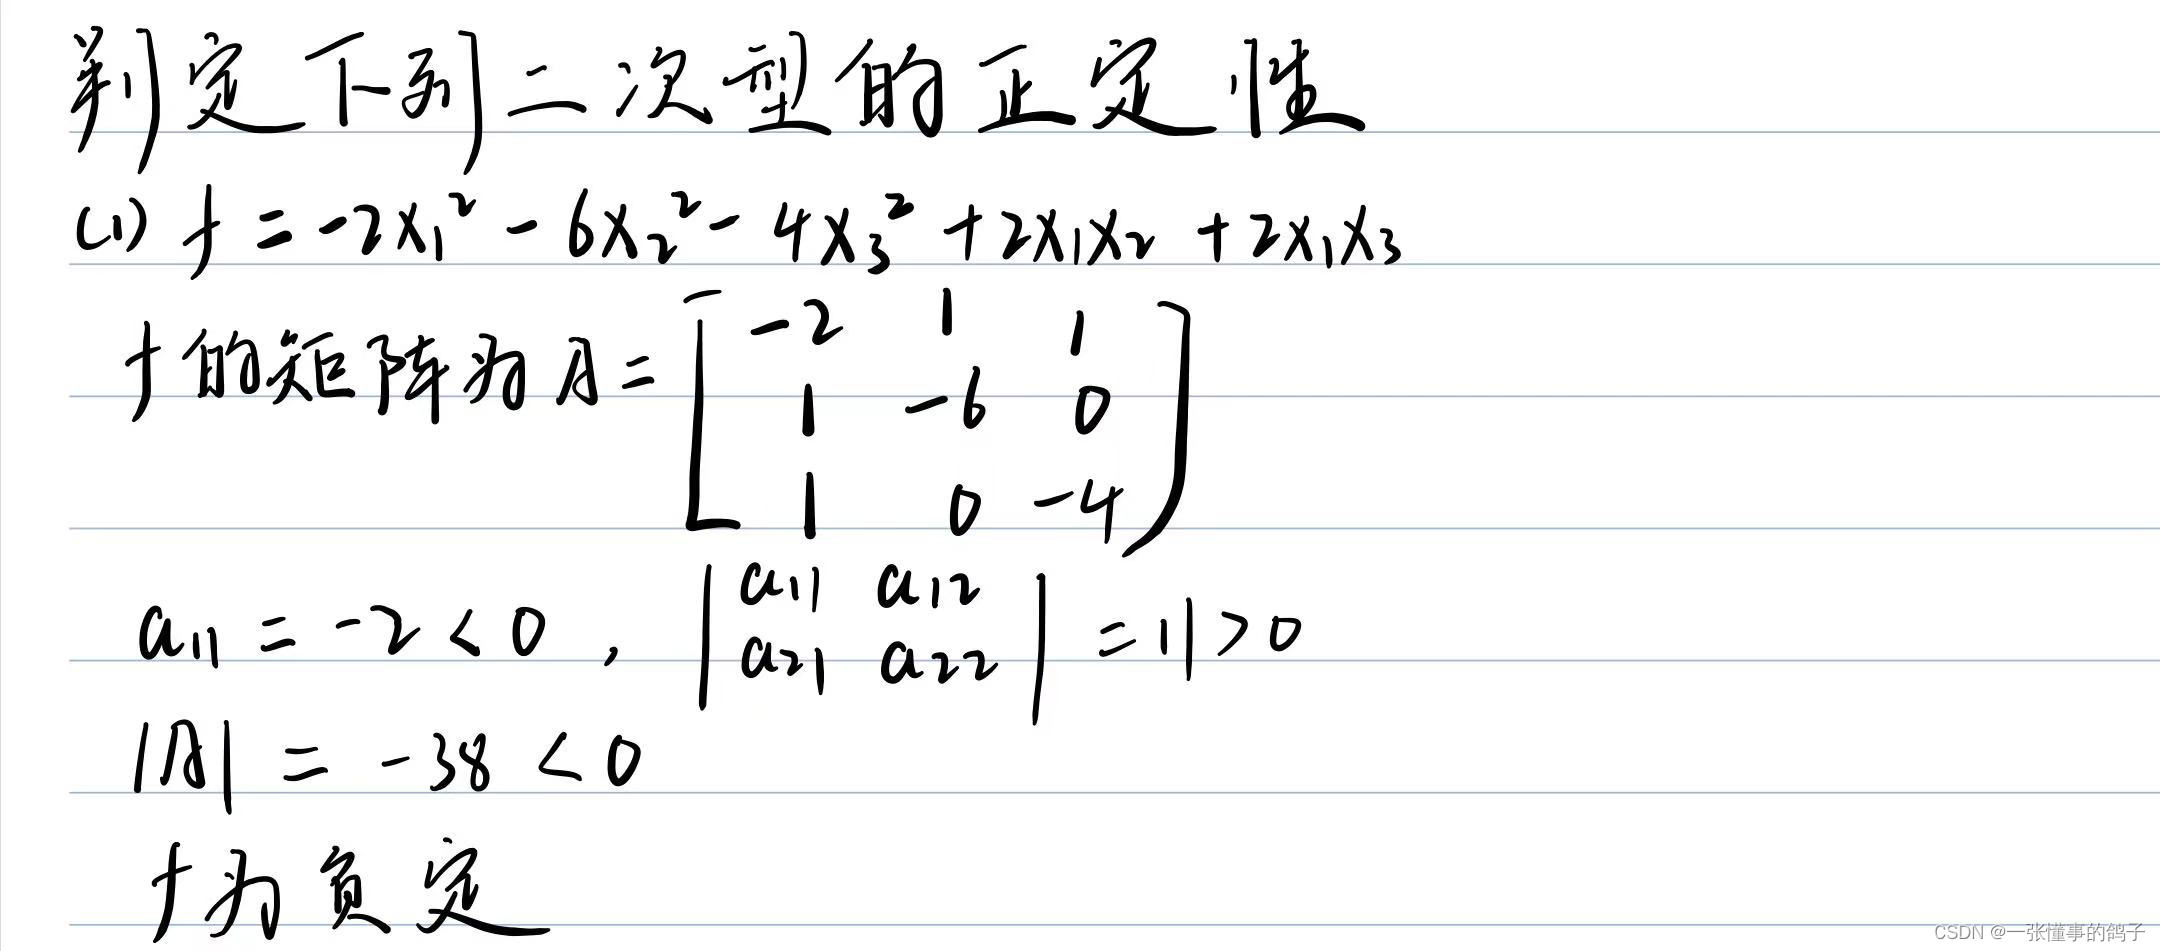 判定下列二次型的正定性
(1) f = -2x₁² - 6x₂² - 4x₃² + 2x₁x₂ + 2x₁x₃
f的矩阵为A = [ -2 1 1
1 -6 0
1 0 -4 ]
a₁₁ = -2 < 0 , | a₁₁ a₁₂
a₂₁ a₂₂ | = 11 > 0
|A| = -38 < 0
f为负定
CSDN @一张懂事的鸽子